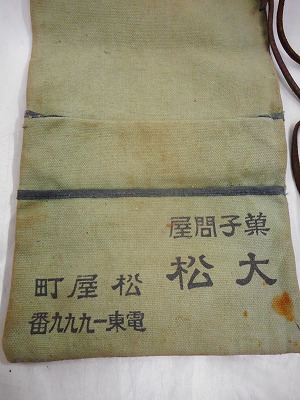 菓子問屋
大松
松屋町
電東一九九九番